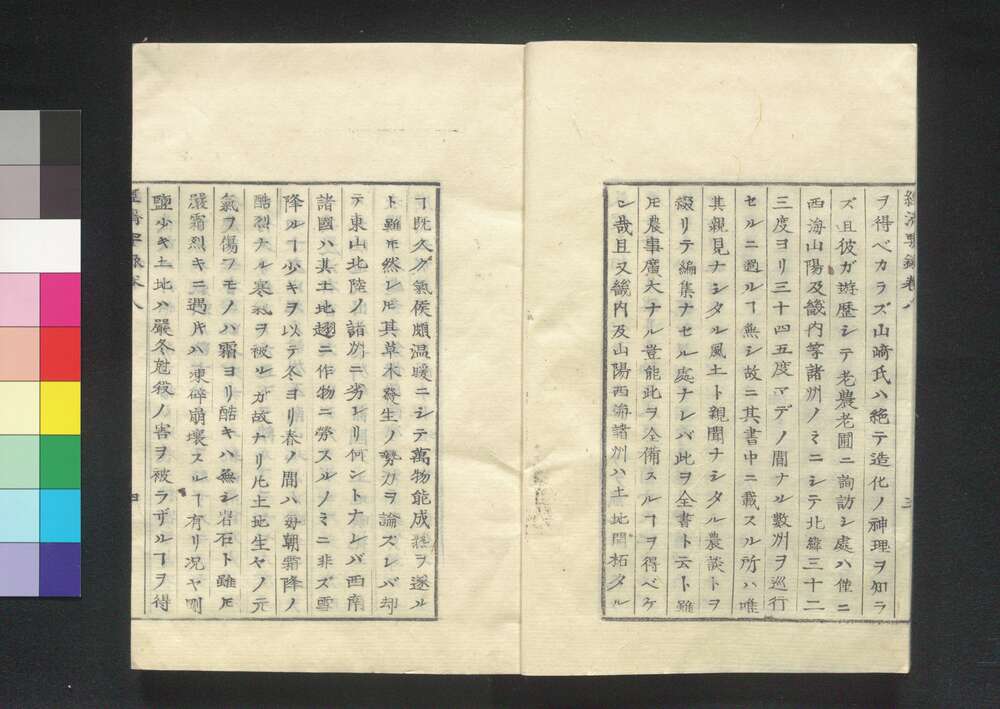 經濟要錄卷八
三
ヲ得ベカラズ山﨑氏ハ絶テ造化ノ神理ヲ知ラ
ズ且彼ガ遊歴シテ老農老圃ニ詢訪シ處ハ僅ニ
西海山陽及畿内等諸州ノミニシテ北緯三十二
三度ヨリ三十四五度マデノ間ナル數州ヲ巡行
セルニ過ルヿ無シ故ニ其書中ニ載スル所ハ唯
其親見ナシタル風土ト親聞ナシタル農談トヲ
綴リテ編集ナセル處ナレバ此ヲ全書ト云ト雖
𪜈農事廣大ナル豈能此ヲ全備スルヿヲ得ベケ
ン哉且又畿内及山陽西海諸州ハ土地開拓タル
ヿ既久ク氣候頗温暖ニシテ萬物能成熟ヲ遂ル
ト雖𪜈然レ𪜈其草木發生ノ勢力ヲ論ズレバ却
テ東山北陸ノ諸州ニ劣レリ何ントナレバ西南
諸國ハ其土地翅ニ作物ニ勞スルノミニ非ズ雪
降ルヿ少キヲ以テ冬ヨリ春ノ間ハ毎朝霜降ノ
酷烈ナル寒氣ヲ被ルガ故ナリ凡土地生ヤノ元
氣ヲ傷フモノハ霜ヨリ酷キハ無シ岩石ト雖𪜈
嚴霜烈キニ遇片ハ凍碎崩壞スルヿ有リ況ヤ剛
鹽少キ土地ハ嚴冬尅殺ノ害ヲ被ラザルヿヲ得
經濟要錄卷八
四